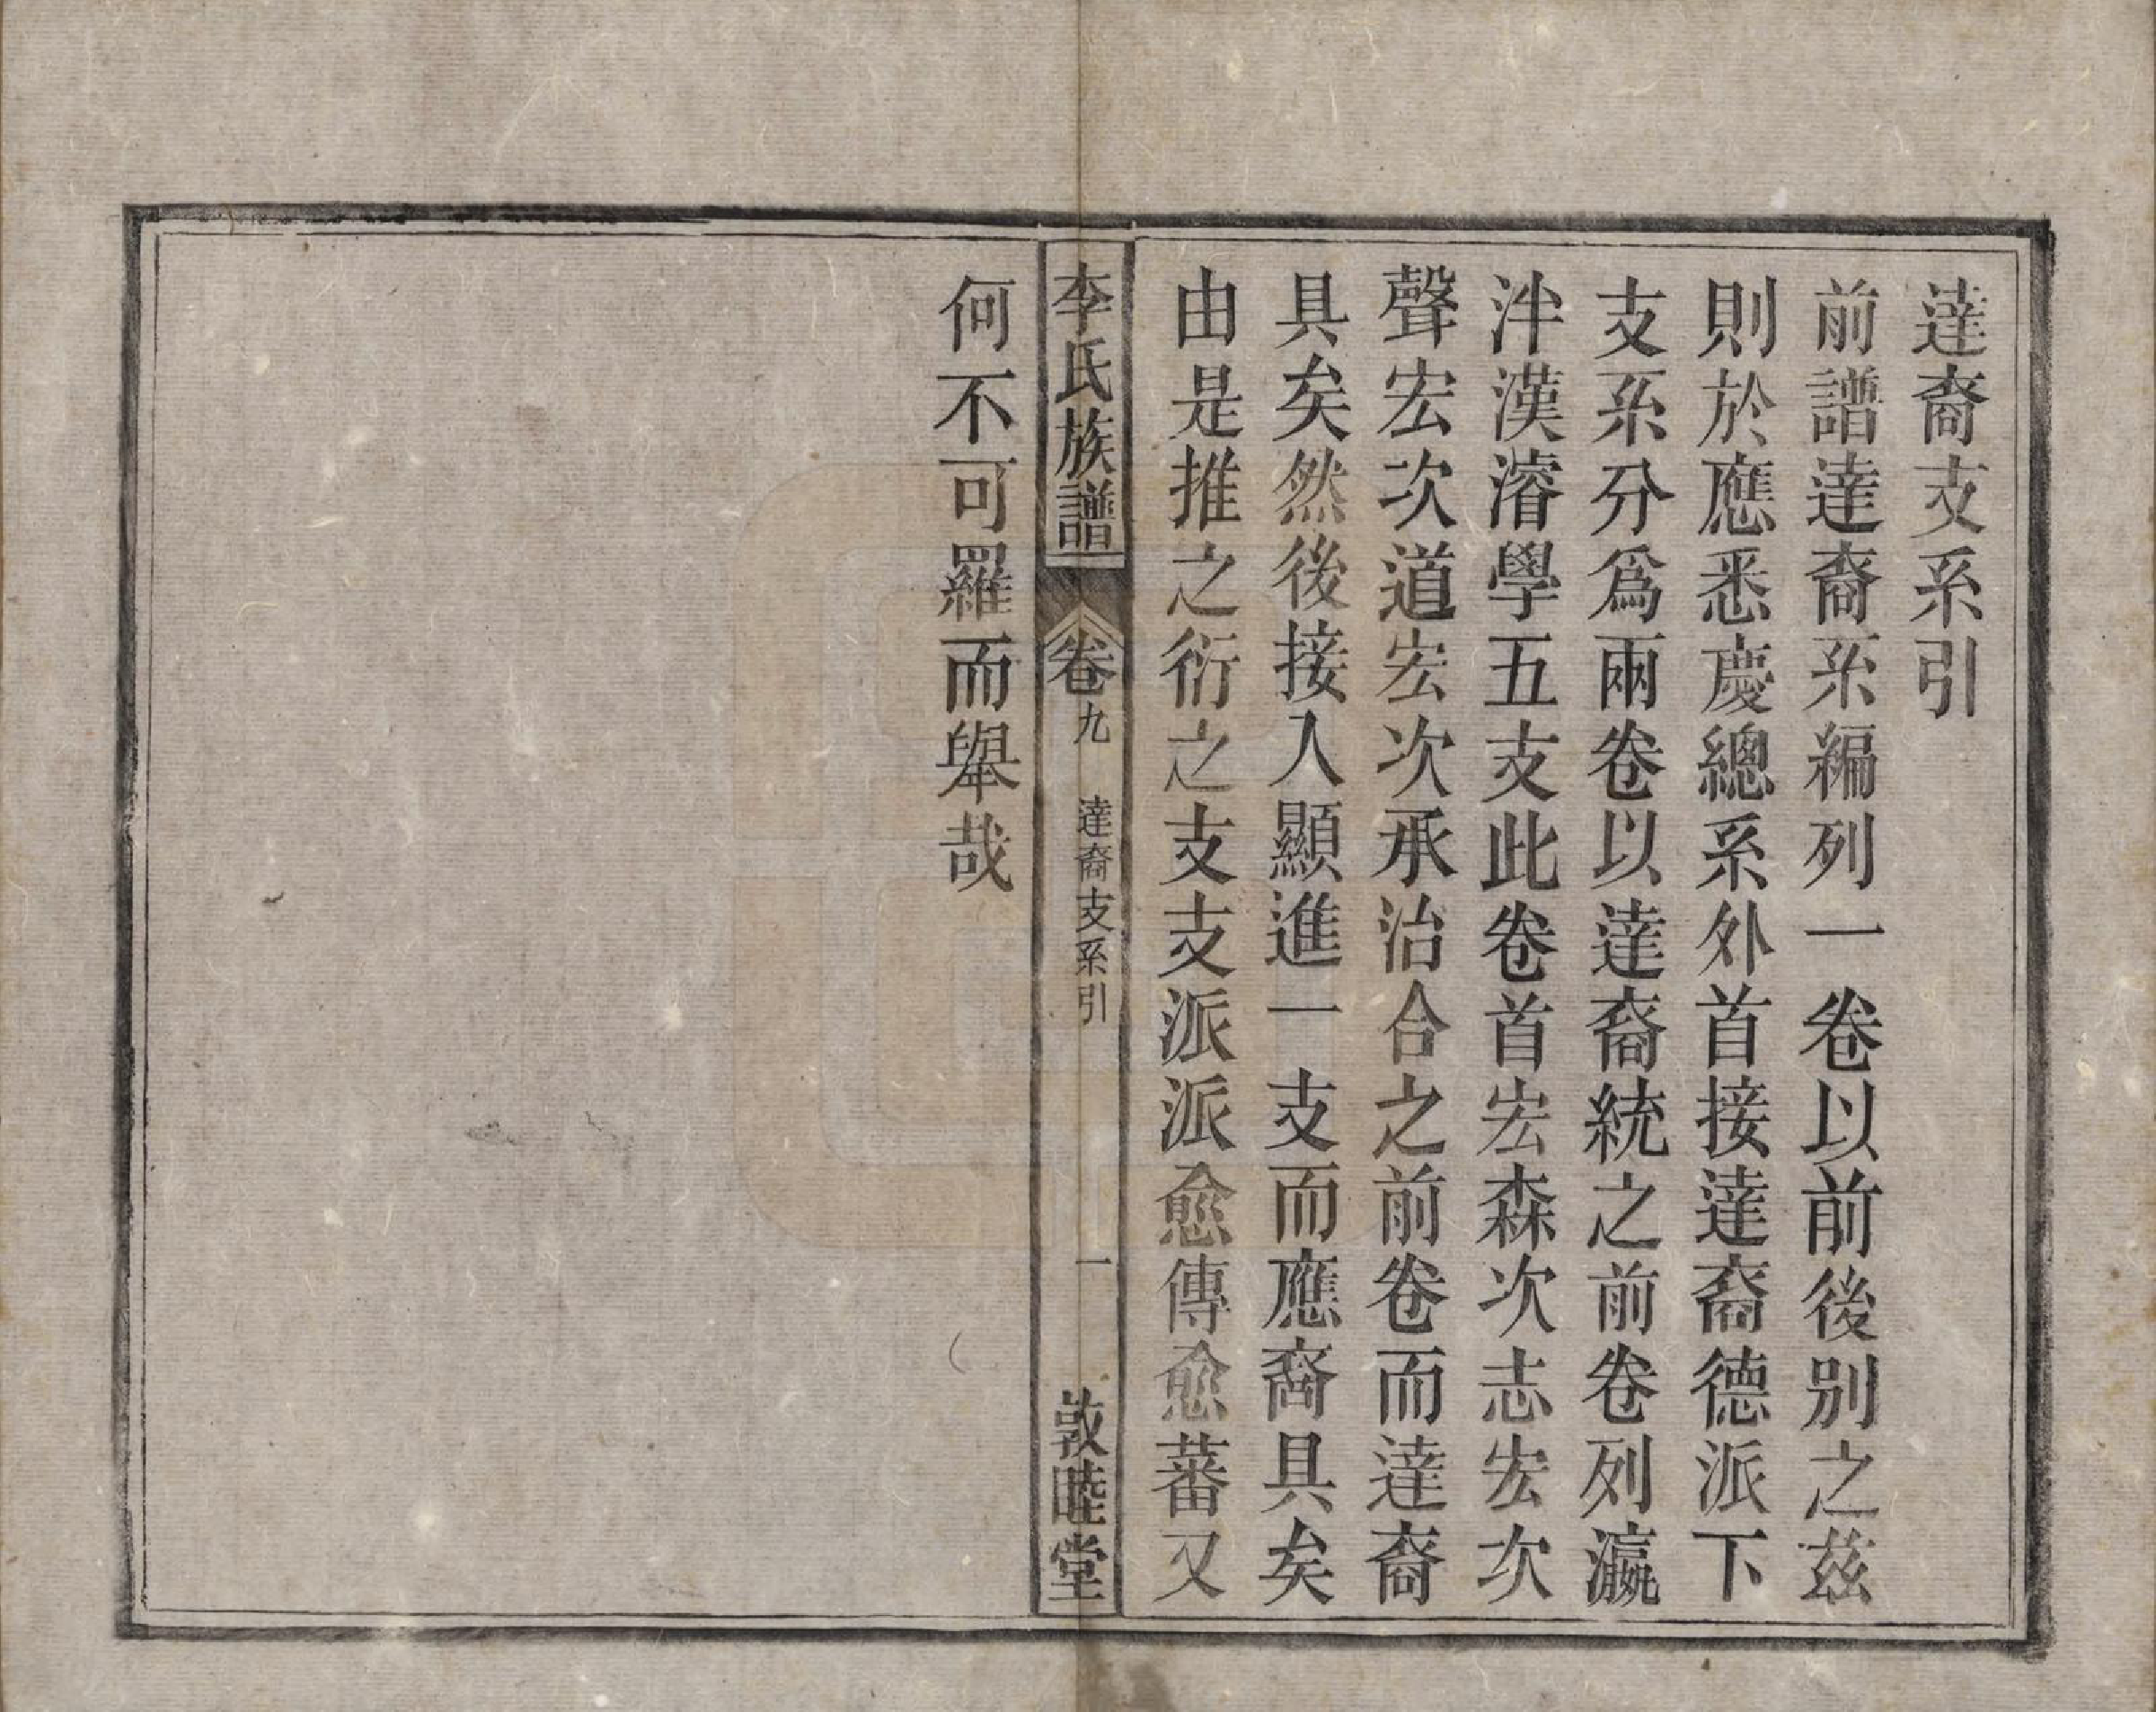 達裔支系引
前譜達裔系編列一卷以前後別之茲
則於應悉慶總系外首接達裔德派下
支系分爲兩卷以達裔統之前卷列瀛
泮漢濬學五支此卷首宏森次志宏次
聲宏次道宏次承治合之前卷而達裔
具矣然後接入顯進一支而應裔具矣
由是推之衍之支支派派愈傳愈蕃又
李氏族譜
卷九
達裔支系引
一
敦睦堂
何不可羅而舉哉